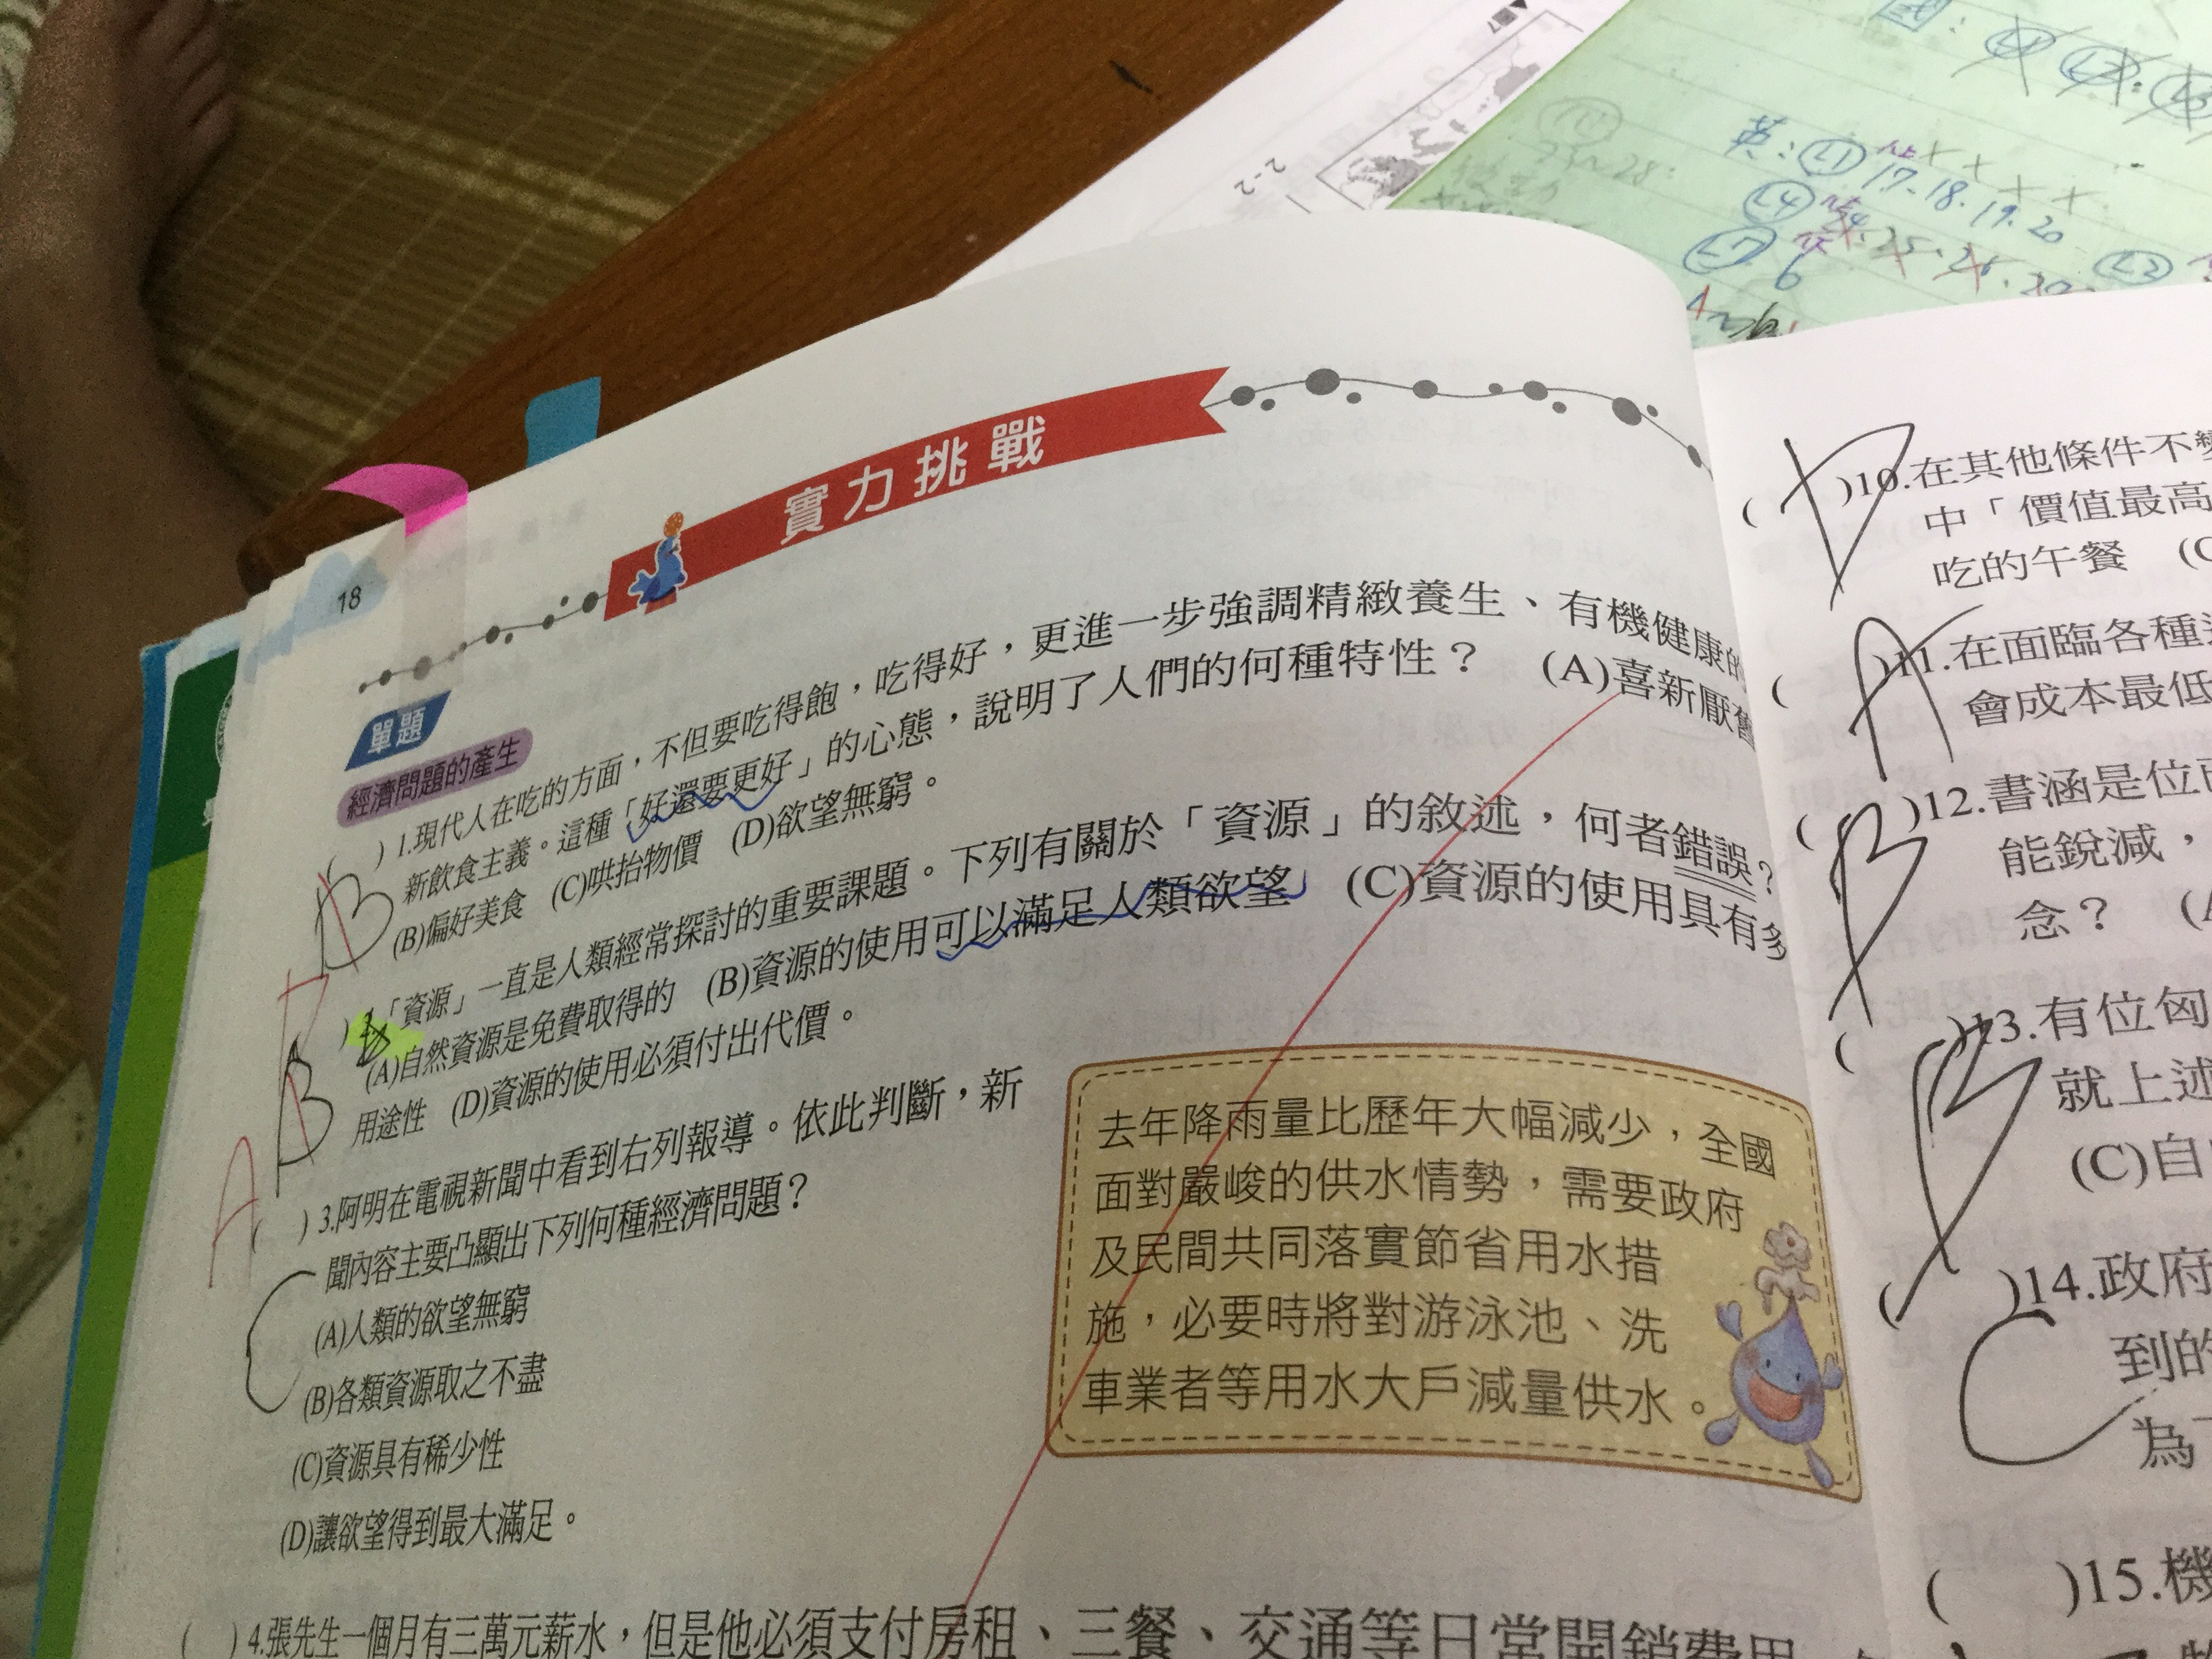 18
實力挑戰
單題
經濟問題的產生
( ) 1.現代人在吃的方面，不但要吃得飽，吃得好，更進一步強調精緻養生、有機健康的
新飲食主義。這種「好還要更好」的心態，說明了人們的何種特性？ (A)喜新厭舊
(B)偏好美食 (C)哄抬物價 (D)欲望無窮。
B
) 2.「資源」一直是人類經常探討的重要課題。下列有關於「資源」的敘述，何者錯誤？
(A)自然資源是免費取得的 (B)資源的使用可以滿足人類欲望 (C)資源的使用具有多
用途性 (D)資源的使用必須付出代價。
B
A
( ) 3.阿明在電視新聞中看到右列報導。依此判斷，新
聞內容主要凸顯出下列何種經濟問題？
(A)人類的欲望無窮
(B)各類資源取之不盡
(C)資源具有稀少性
(D)讓欲望得到最大滿足。
C
去年降雨量比歷年大幅減少，全國
面對嚴峻的供水情勢，需要政府
及民間共同落實節省用水措
施，必要時將對游泳池、洗
車業者等用水大戶減量供水。
( ) 4.張先生一個月有三萬元薪水，但是他必須支付房租、三餐、交通等日常開銷費用
( D )10.在其他條件不變
中「價值最高
吃的午餐 (C
( A )11.在面臨各種
會成本最低
( B )12.書涵是位
能銳減，
念？ (A
( B )13.有位匈
就上述
(C)自
( C )14.政府
到的
為
( )15.機
2-2
國：L1 L2
英：L1 17.18.19.20
L4 24.25.26.
L7 6
L2